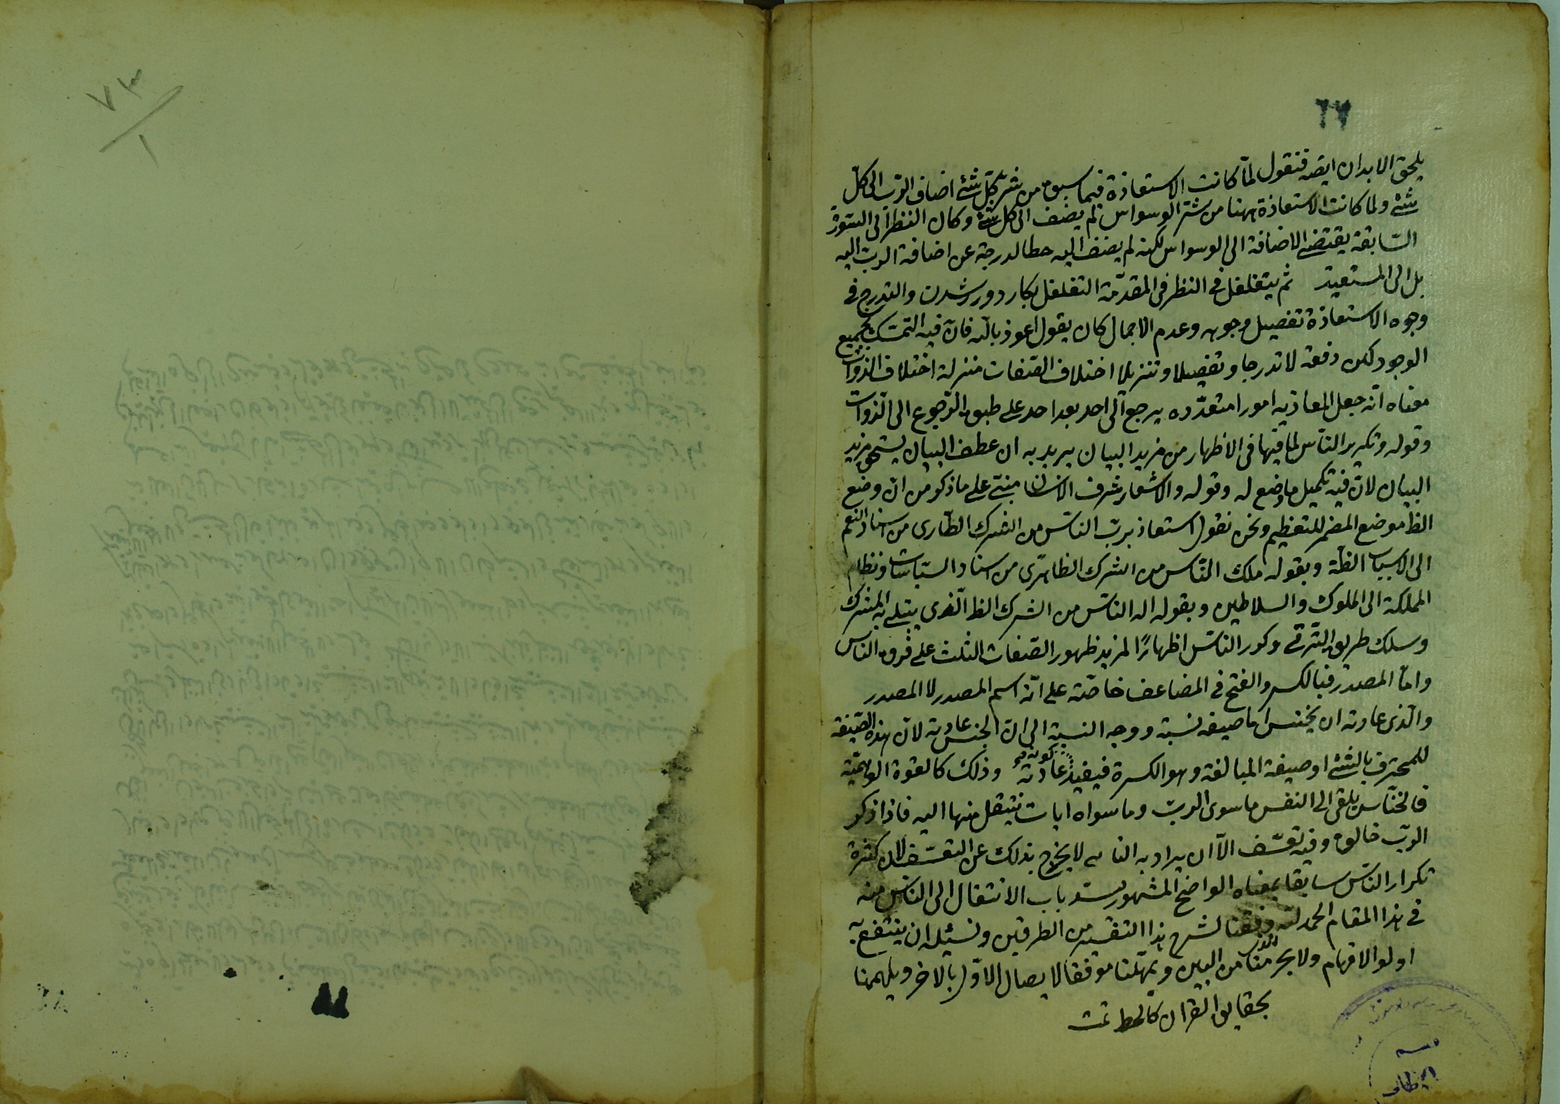 ٦٧
يلحق الابدان ايضه فنقول لمّا كانت الاستعاذة فيما سبق من شر كل شئ اضاف الرب الى كلّ
شئ ولما كانت الاستعاذة ههنا من شر الوسواس لم يضف الى كل شئ وكان النظر الى السورة
السّابقة يقتضى الاضافة الى الوسواس لكنه لم يضف اليه حطا لدرجة عن اضافة الرب اليه
بل الى المستعيذ ثم يتغلغل فى النظر فى المقدّمة التغلغل والتدرج فى
وجوه الاستعاذة تفصيل وجوه وعدم الاجمال كان يقول اعوذ بالله فان فيه التمسك بجميع
الوجوه لكن دفعة لا تدرجا وتفصيلا وتنزيلا اختلاف الصّفات منزلة اختلاف الذوات
معناه انه جعل المعاذ به امورا متعدّدة يرجع الى احد بعد احد على طبق الرّجوع الى الذوات
وقوله وتكرير النّاس لما فيها فى الاظهار من مزيد البيان يريد به ان عطف البيان يستحق مزيد
البيان لان فيه تكميل ما وضع له وقوله والاشعار بشرف الانسان مبنىّ على ما ذكر من ان وضع
الظ موضع المضمر للتعظيم ونحن نقول استعاذ برب الناس من الشرك الطارى من اسناد النعم
الى الاسباب الظة وبقوله ملك النّاس من الشرك الظاهرى من اسناد السياسات ونظام
المملكة الى الملوك والسلاطين وبقوله اله الناس من الشرك الظ الذى يبتلى به المشرك
وسلك طريق الترقى وكرر النّاس اظهارًا لمزيد ظهور الصّفات الثلث على فرق الناس
وامّا المصدر فبالكسر والفتح فى المضاعف خاصّة على انّه اسم المصدر لا المصدر
والّذى عادته ان يخنس اما صيغة نسبة ووجه النسبة الى ان الخنس عادته لان هذه الصّيغة
للمحترف بالشئ او صيغة المبالغة وهو الكسرة فيفيد كونه عادته وذلك كالقوة الوهميّة
فالخنّاس يلقى الى النفس ما سوى الربّ وما سواه ايات ينتقل منها اليه فاذا ذكر
الربّ خالق وفيه تعسّف الّا ان يراد به الناسى لا يخرج بذلك عن التعسّف لان كثرة
تكرار الناس سابقا بمعناه الواضح المشهور يسد باب الانتقال الى الناسى منه
فى هذا المقام الحمد لله وفقنا لشرح هذا التفسير من الطرفين ونسئله ان ينتفع به
اولوا الافهام ولا يجرمنا من البين ويمهلنا موفقا لايصال الاوّل بالاخر ويلهمنا
بحقايق القران تمت
قسم
٧٣
١